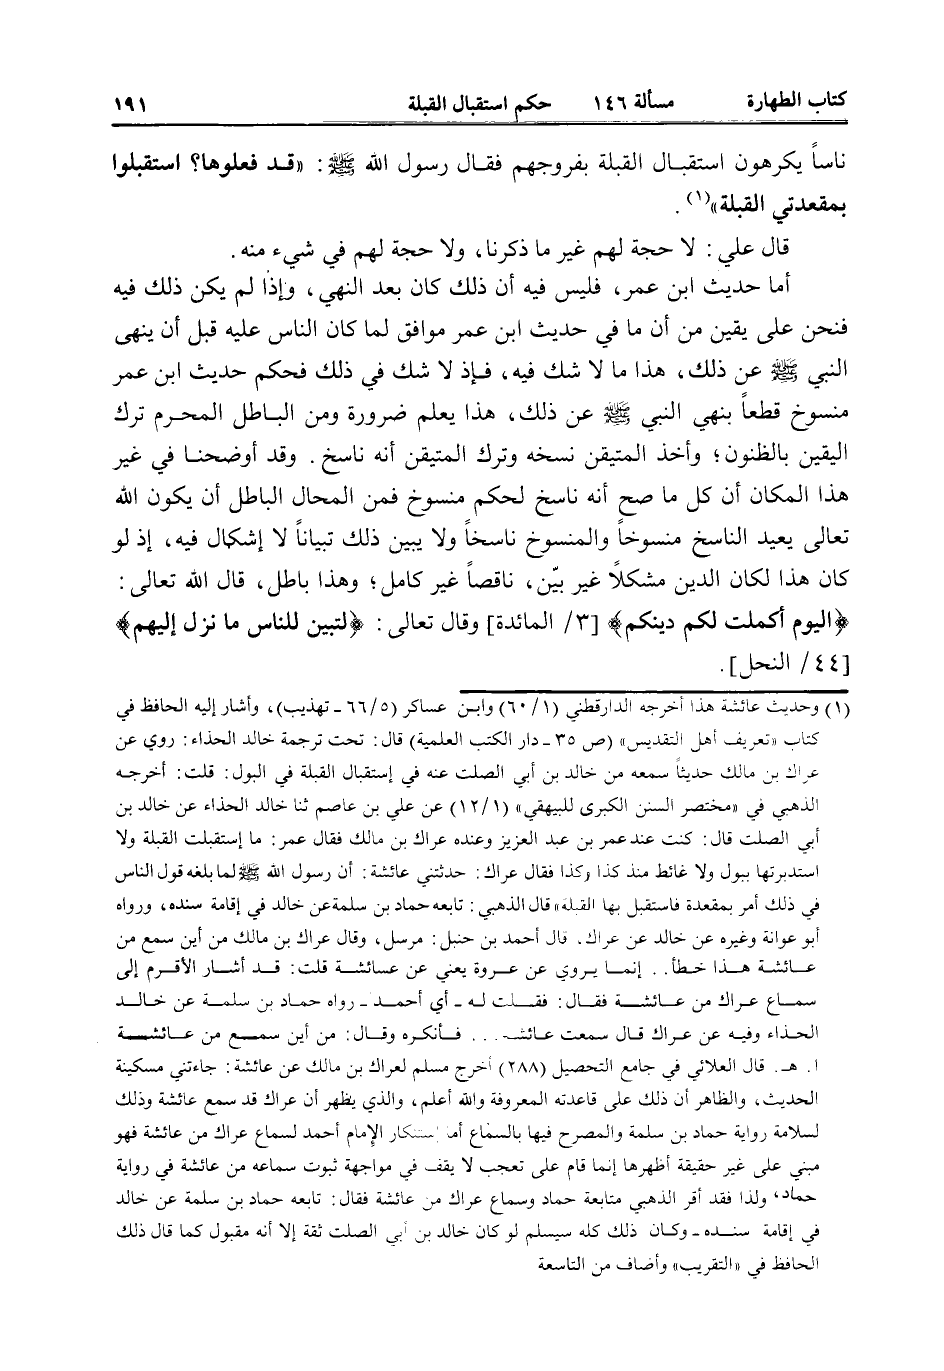 كتاب الطهارة مسألة ١٤٦ حكم استقبال القبلة ١٩١
ناساً يكرهون استقبال القبلة بفروجهم فقال رسول الله ﷺ: «قد فعلوها؟ استقبلوا
بمقعدتي القبلة»(١).
قال علي: لا حجة لهم غير ما ذكرنا، ولا حجة لهم في شيء منه.
أما حديث ابن عمر، فليس فيه أن ذلك كان بعد النهي، وإذا لم يكن ذلك فيه
فنحن على يقين من أن ما في حديث ابن عمر موافق لما كان الناس عليه قبل أن ينهى
النبي ﷺ عن ذلك، هذا ما لا شك فيه، فإذ لا شك في ذلك فحكم حديث ابن عمر
منسوخ قطعاً بنهي النبي ﷺ عن ذلك، هذا يعلم ضرورة ومن الباطل المحرم ترك
اليقين بالظنون؛ وأخذ المتيقن نسخه وترك المتيقن أنه ناسخ. وقد أوضحنا في غير
هذا المكان أن كل ما صح أنه ناسخ لحكم منسوخ فمن المحال الباطل أن يكون الله
تعالى يعيد الناسخ منسوخاً والمنسوخ ناسخاً ولا يبين ذلك تبياناً لا إشكال فيه، إذ لو
كان هذا لكان الدين مشكلاً غير بيّن، ناقصاً غير كامل؛ وهذا باطل، قال الله تعالى:
﴿اليوم أكملت لكم دينكم﴾ [٣/ المائدة] وقال تعالى: ﴿لتبين للناس ما نزل إليهم﴾
[٤٤/ النحل].
(١) وحديث عائشة هذا أخرجه الدارقطني (٦٠/١) وابن عساكر (٦٦/٥ - تهذيب)، وأشار إليه الحافظ في
كتاب «تعريف أهل التقديس» (ص ٣٥ - دار الكتب العلمية) قال: تحت ترجمة خالد الحذاء: روي عن
عراك بن مالك حديثاً سمعه من خالد بن أبي الصلت عنه في إستقبال القبلة في البول: قلت: أخرجه
الذهبي في «مختصر السنن الكبرى للبيهقي» (١٢/١) عن علي بن عاصم ثنا خالد الحذاء عن خالد بن
أبي الصلت قال: كنت عند عمر بن عبد العزيز وعنده عراك بن مالك فقال عمر: ما إستقبلت القبلة ولا
استدبرتها ببول ولا غائط منذ كذا وكذا فقال عراك: حدثتني عائشة: أن رسول الله ﷺ لما بلغه قول الناس
في ذلك أمر بمقعدة فاستقبل بها القبلة» قال الذهبي: تابعه حماد بن سلمة عن خالد في إقامة سنده، ورواه
أبو عوانة وغيره عن خالد عن عراك. قال أحمد بن حنبل: مرسل، وقال عراك بن مالك من أين سمع من
عائشة هذا خطأ.. إنما يروي عن عروة يعني عن عائشة قلت: قد أشار الأقرم إلى
سماع عراك من عائشة فقال: فقلت له - أي أحمد - رواه حماد بن سلمة عن خالد
الحذاء وفيه عن عراك قال سمعت عائشة... فأنكره وقال: من أين سمع من عائشة
ا. هـ. قال العلائي في جامع التحصيل (٢٨٨) أخرج مسلم لعراك بن مالك عن عائشة: جاءتني مسكينة
الحديث، والظاهر أن ذلك على قاعدته المعروفة والله أعلم، والذي يظهر أن عراك قد سمع عائشة وذلك
لسلامة رواية حماد بن سلمة والمصرح فيها بالسماع أما إستنكار الإمام أحمد لسماع عراك من عائشة فهو
مبني على غير حقيقة أظهرها إنما قام على تعجب لا يقف في مواجهة ثبوت سماعه من عائشة في رواية
حماد، ولذا فقد أقر الذهبي متابعة حماد وسماع عراك من عائشة فقال: تابعه حماد بن سلمة عن خالد
في إقامة سنده - وكان ذلك كله سيسلم لو كان خالد بن أبي الصلت ثقة إلا أنه مقبول كما قال ذلك
الحافظ في «التقريب» وأضاف من التاسعة